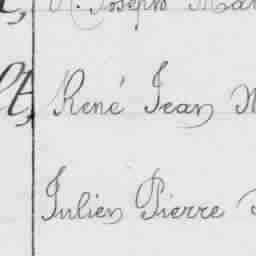 Joseph
René Jean
Julien Pierre